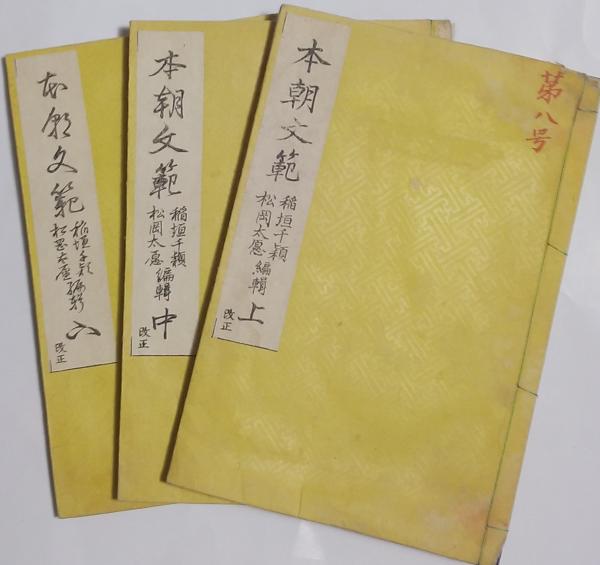 第八号
本朝文範
稲垣千穎
松岡太愿 編輯
上
改正
本朝文範
稲垣千穎
松岡太愿 編輯
中
改正
本朝文範
稲垣千穎
松岡太愿 編輯
下
改正